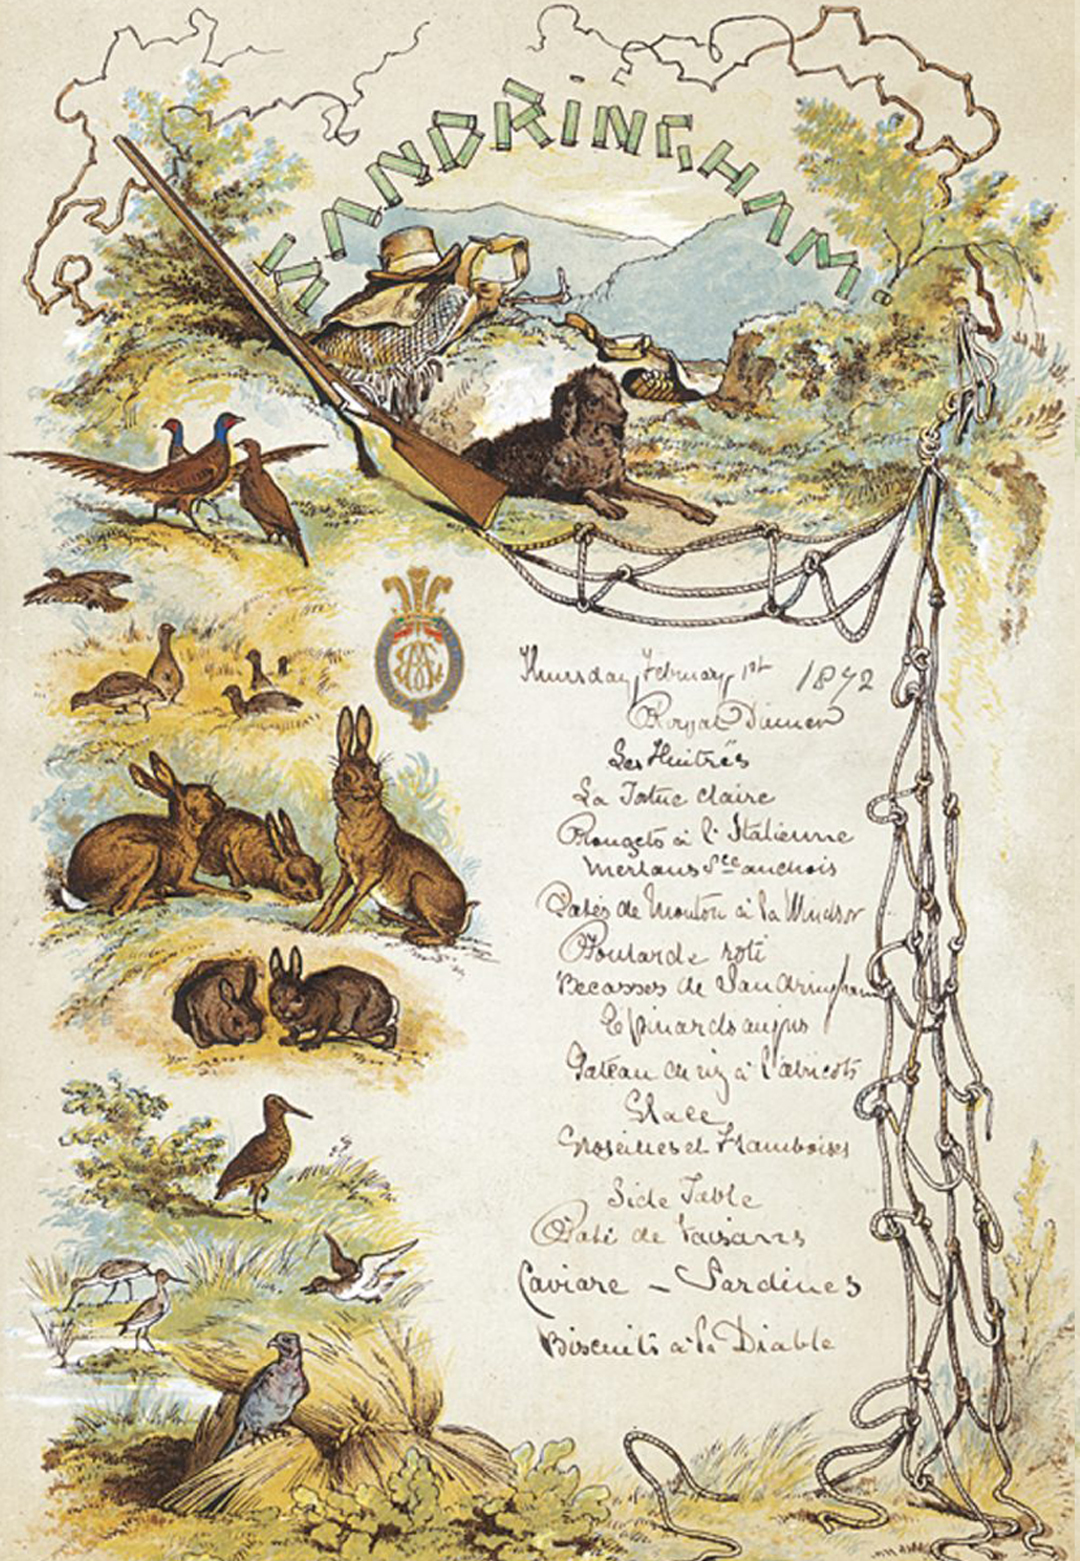 SANDRINGHAM.
Thursday February 1st 1872
Royal Dinner
Les Huitres
La Tortue claire
Rougets à l'Italienne
Merlans Sce anchois
Patés de Mouton à la Windsor
Poularde roti
Becasses de Sandringham
Epinards au jus
Gateau de riz à l'abricots
Glace
Groseilles et Framboises
Side Table
Paté de Faisans
Caviare – Sardines
Biscuits à la Diable